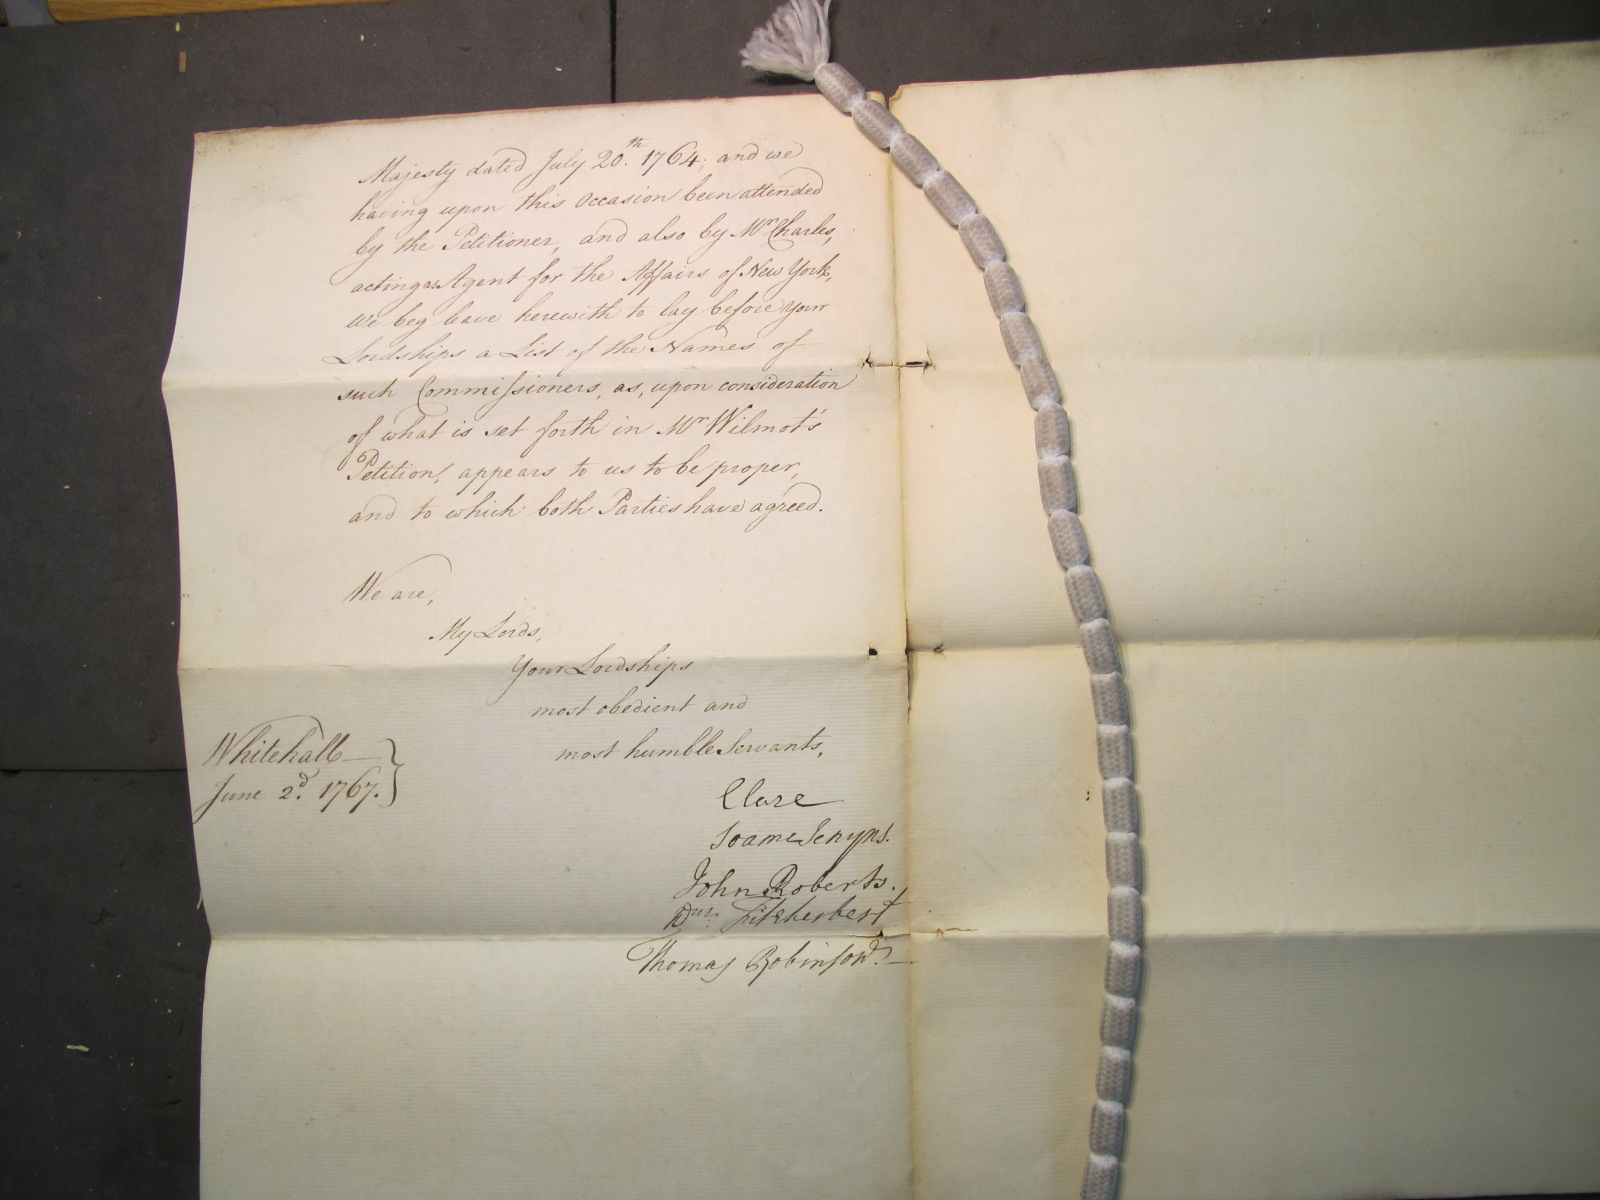 Majesty dated July 20.th 1764; and we
having upon this Occasion been attended
by the Petitioner, and also by Mr Charles,
acting as Agent for the Affairs of New York,
we beg leave herewith to lay before Your
Lordships a List of the Names of
such Commissioners, as, upon consideration
of what is set forth in Mr Wilmot's
Petition, appears to us to be proper,
and to which both Parties have agreed.
We are,
My Lords,
Your Lordships
most obedient and
most humble Servants,
Whitehall
June 2.d 1767.
Clare
Soame Jenyns.
John Roberts.
Wm. Fitzherbert
Thomas Robinson.